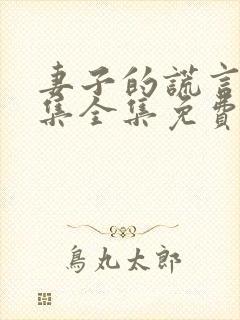 妻子的謊言
集全集免費
鳥丸太郎